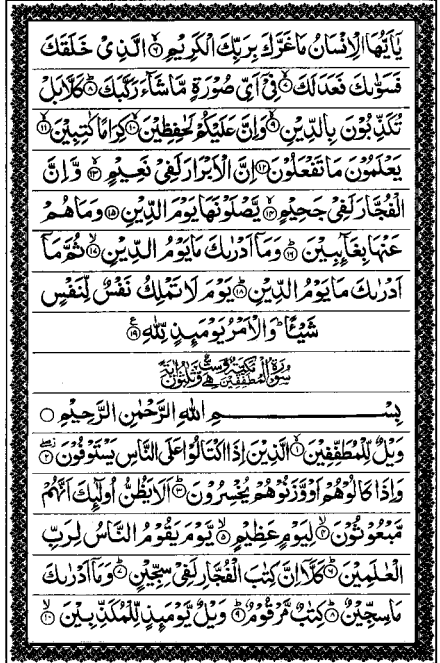 يٰۤاَيُّهَا الْاِنْسَانُ مَا غَرَّكَ بِرَبِّكَ الْكَرِيْمِ ۙ﴿۶﴾ الَّذِىْ خَلَقَكَ
فَسَوّٰىكَ فَعَدَلَكَ ۙ﴿۷﴾ فِىْۤ اَىِّ صُوْرَةٍ مَّا شَآءَ رَكَّبَكَ ؕ﴿۸﴾ كَلَّا بَلْ
تُكَذِّبُوْنَ بِالدِّيْنِ ۙ﴿۹﴾ وَاِنَّ عَلَيْكُمْ لَحٰفِظِيْنَ ۙ﴿۱۰﴾ كِرَامًا كٰتِبِيْنَ ۙ﴿۱۱﴾
يَعْلَمُوْنَ مَا تَفْعَلُوْنَ ﴿۱۲﴾ اِنَّ الْاَبْرَارَ لَفِىْ نَعِيْمٍ ۚ﴿۱۳﴾ وَّاِنَّ
الْفُجَّارَ لَفِىْ جَحِيْمٍ ۚۖ﴿۱۴﴾ يَّصْلَوْنَهَا يَوْمَ الدِّيْنِ ﴿۱۵﴾ وَمَا هُمْ
عَنْهَا بِغَآىِٕبِيْنَ ؕ﴿۱۶﴾ وَمَاۤ اَدْرٰىكَ مَا يَوْمُ الدِّيْنِ ۙ﴿۱۷﴾ ثُمَّ مَاۤ
اَدْرٰىكَ مَا يَوْمُ الدِّيْنِ ؕ﴿۱۸﴾ يَوْمَ لَا تَمْلِكُ نَفْسٌ لِّنَفْسٍ
شَيْـًٔا ؕ وَالْاَمْرُ يَوْمَىِٕذٍ لِّلّٰهِ ﴿۱۹﴾ ع
سُوْرَةُ الْمُطَفِّفِيْنَ مَكِّيَّةٌ وَّهِىَ سِتٌّ وَّثَلٰثُوْنَ اٰيَةً
بِسْمِ اللّٰهِ الرَّحْمٰنِ الرَّحِيْمِ
وَيْلٌ لِّلْمُطَفِّفِيْنَ ۙ﴿۱﴾ الَّذِيْنَ اِذَا اكْتَالُوْا عَلَى النَّاسِ يَسْتَوْفُوْنَ ۖ﴿۲﴾
وَاِذَا كَالُوْهُمْ اَوْ وَّزَنُوْهُمْ يُخْسِرُوْنَ ؕ﴿۳﴾ اَلَا يَظُنُّ اُولٰٓىِٕكَ اَنَّهُمْ
مَّبْعُوْثُوْنَ ۙ﴿۴﴾ لِيَوْمٍ عَظِيْمٍ ۙ﴿۵﴾ يَّوْمَ يَقُوْمُ النَّاسُ لِرَبِّ
الْعٰلَمِيْنَ ؕ﴿۶﴾ كَلَّاۤ اِنَّ كِتٰبَ الْفُجَّارِ لَفِىْ سِجِّيْنٍ ؕ﴿۷﴾ وَمَاۤ اَدْرٰىكَ
مَا سِجِّيْنٌ ؕ﴿۸﴾ كِتٰبٌ مَّرْقُوْمٌ ؕ﴿۹﴾ وَيْلٌ يَّوْمَىِٕذٍ لِّلْمُكَذِّبِيْنَ ۙ﴿۱۰﴾